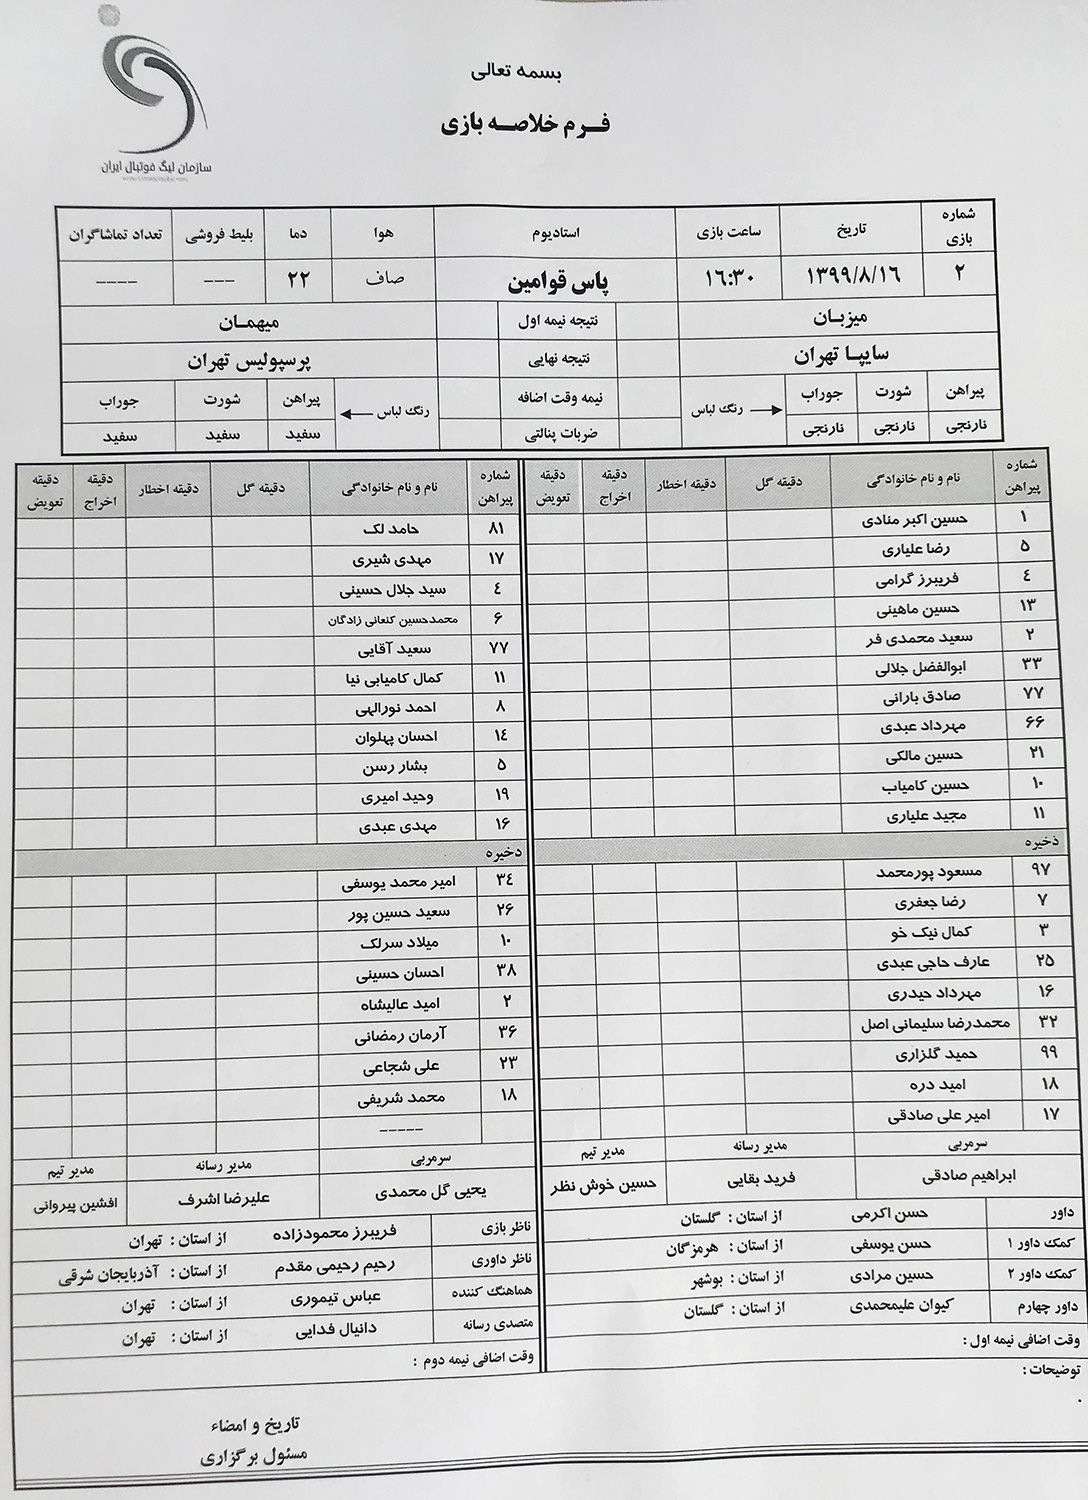 سازمان لیگ فوتبال ایران
بسمه تعالی
فرم خلاصه بازی
شماره بازی	تاریخ	ساعت بازی	استادیوم	هوا	دما	بلیط فروشی	تعداد تماشاگران
۲	۱۳۹۹/۸/۱۶	۱۶:۳۰	پاس قوامین	صاف	۲۲	---	----
میزبان	نتیجه نیمه اول	میهمان
سایپا تهران	نتیجه نهایی	پرسپولیس تهران
پیراهن	شورت	جوراب	رنگ لباس	نیمه وقت اضافه	رنگ لباس	پیراهن	شورت	جوراب
نارنجی	نارنجی	نارنجی	ضربات پنالتی	سفید	سفید	سفید
شماره پیراهن	نام و نام خانوادگی	دقیقه گل	دقیقه اخطار	دقیقه اخراج	دقیقه تعویض
۱	حسین اکبر منادی
۵	رضا علیاری
٤	فریبرز گرامی
۱۳	حسین ماهینی
۲	سعید محمدی فر
۳۳	ابوالفضل جلالی
۷۷	صادق بارانی
۶۶	مهرداد عبدی
۲۱	حسین مالکی
۱۰	حسین کامیاب
۱۱	مجید علیاری
ذخیره
۹۷	مسعود پورمحمد
۷	رضا جعفری
۳	کمال نیک خو
۲۵	عارف حاجی عبدی
۱۶	مهرداد حیدری
۳۲	محمدرضا سلیمانی اصل
۹۹	حمید گلزاری
۱۸	امید دره
۱۷	امیر علی صادقی
سرمربی	مدیر رسانه	مدیر تیم
ابراهیم صادقی	فرید بقایی	حسین خوش نظر
داور	حسن اکرمی	از استان : گلستان
کمک داور ۱	حسن یوسفی	از استان : هرمزگان
کمک داور ۲	حسین مرادی	از استان : بوشهر
داور چهارم	کیوان علیمحمدی	از استان : گلستان
وقت اضافی نیمه اول :
شماره پیراهن	نام و نام خانوادگی	دقیقه گل	دقیقه اخطار	دقیقه اخراج	دقیقه تعویض
۸۱	حامد لک
۱۷	مهدی شیری
٤	سید جلال حسینی
۶	محمدحسین کنعانی زادگان
۷۷	سعید آقایی
۱۱	کمال کامیابی نیا
۸	احمد نورالهی
۱٤	احسان پهلوان
۵	بشار رسن
۱۹	وحید امیری
۱۶	مهدی عبدی
ذخیره
۳٤	امیر محمد یوسفی
۲۶	سعید حسین پور
۱۰	میلاد سرلک
۳۸	احسان حسینی
۲	امید عالیشاه
۳۶	آرمان رمضانی
۲۳	علی شجاعی
۱۸	محمد شریفی
-----
سرمربی	مدیر رسانه	مدیر تیم
یحیی گل محمدی	علیرضا اشرف	افشین پیروانی
ناظر بازی	فریبرز محمودزاده	از استان : تهران
ناظر داوری	رحیم رحیمی مقدم	از استان : آذربایجان شرقی
هماهنگ کننده	عباس تیموری	از استان : تهران
متصدی رسانه	دانیال فدایی	از استان : تهران
وقت اضافی نیمه دوم :
توضیحات :
.
تاریخ و امضاء
مسئول برگزاری